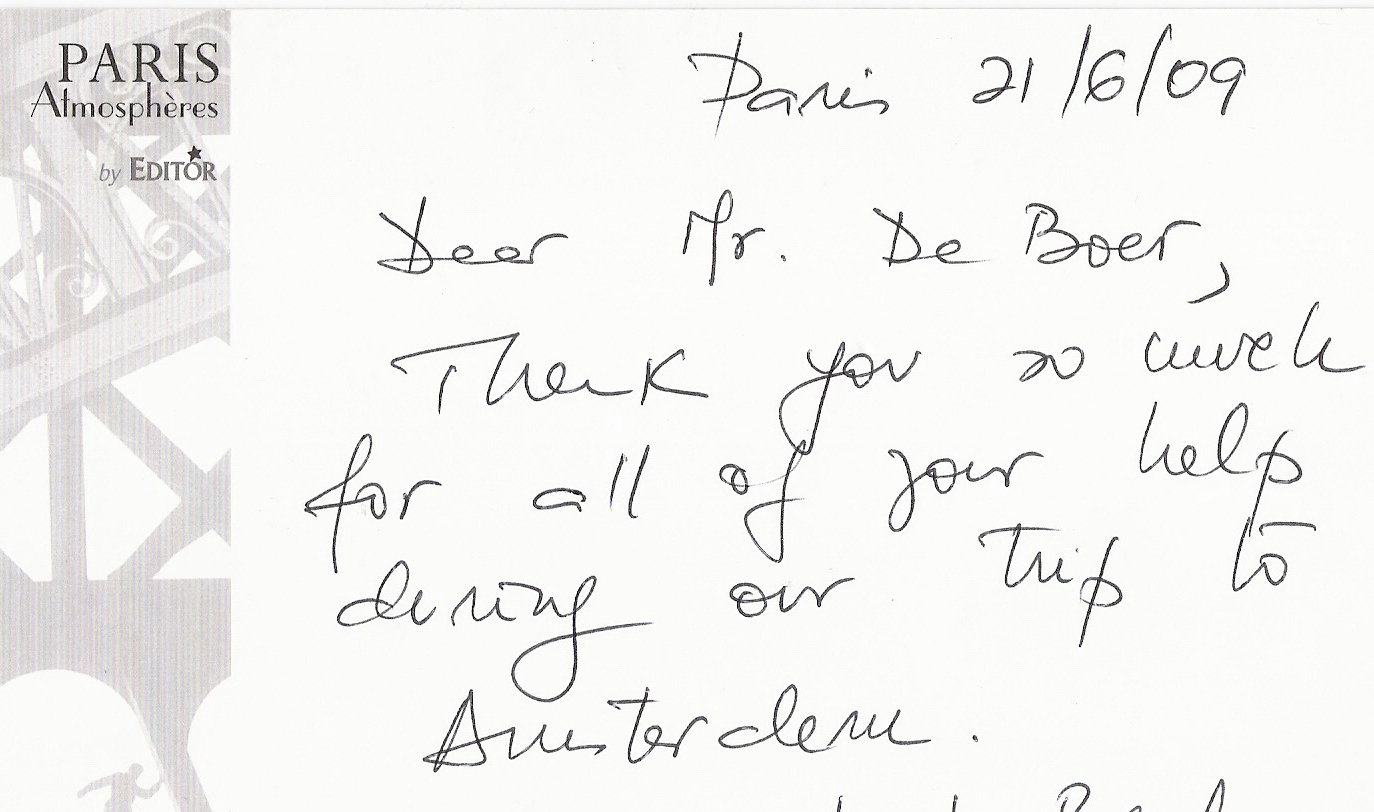 PARIS
Atmosphères
by EDITOR
Paris 21/6/09
Dear Mr. De Boer,
Thank you so much
for all of your help
during our trip to
Amsterdam.